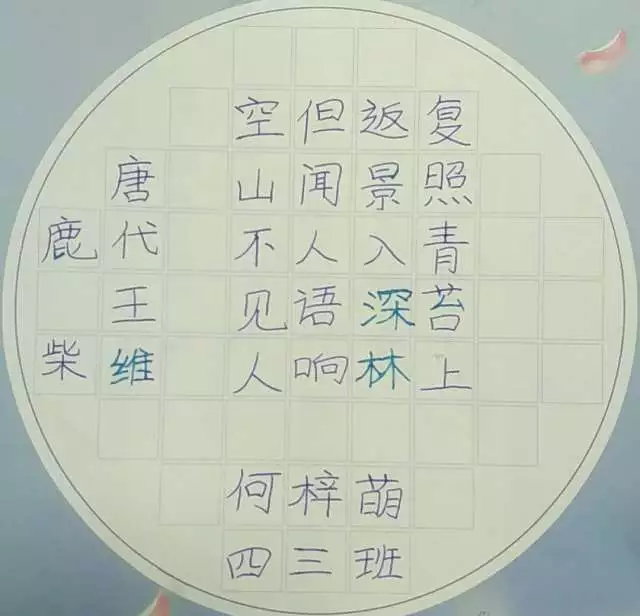 鹿柴
唐代王维
空山不见人
但闻人语响
返景入深林
复照青苔上
何梓萌
四三班